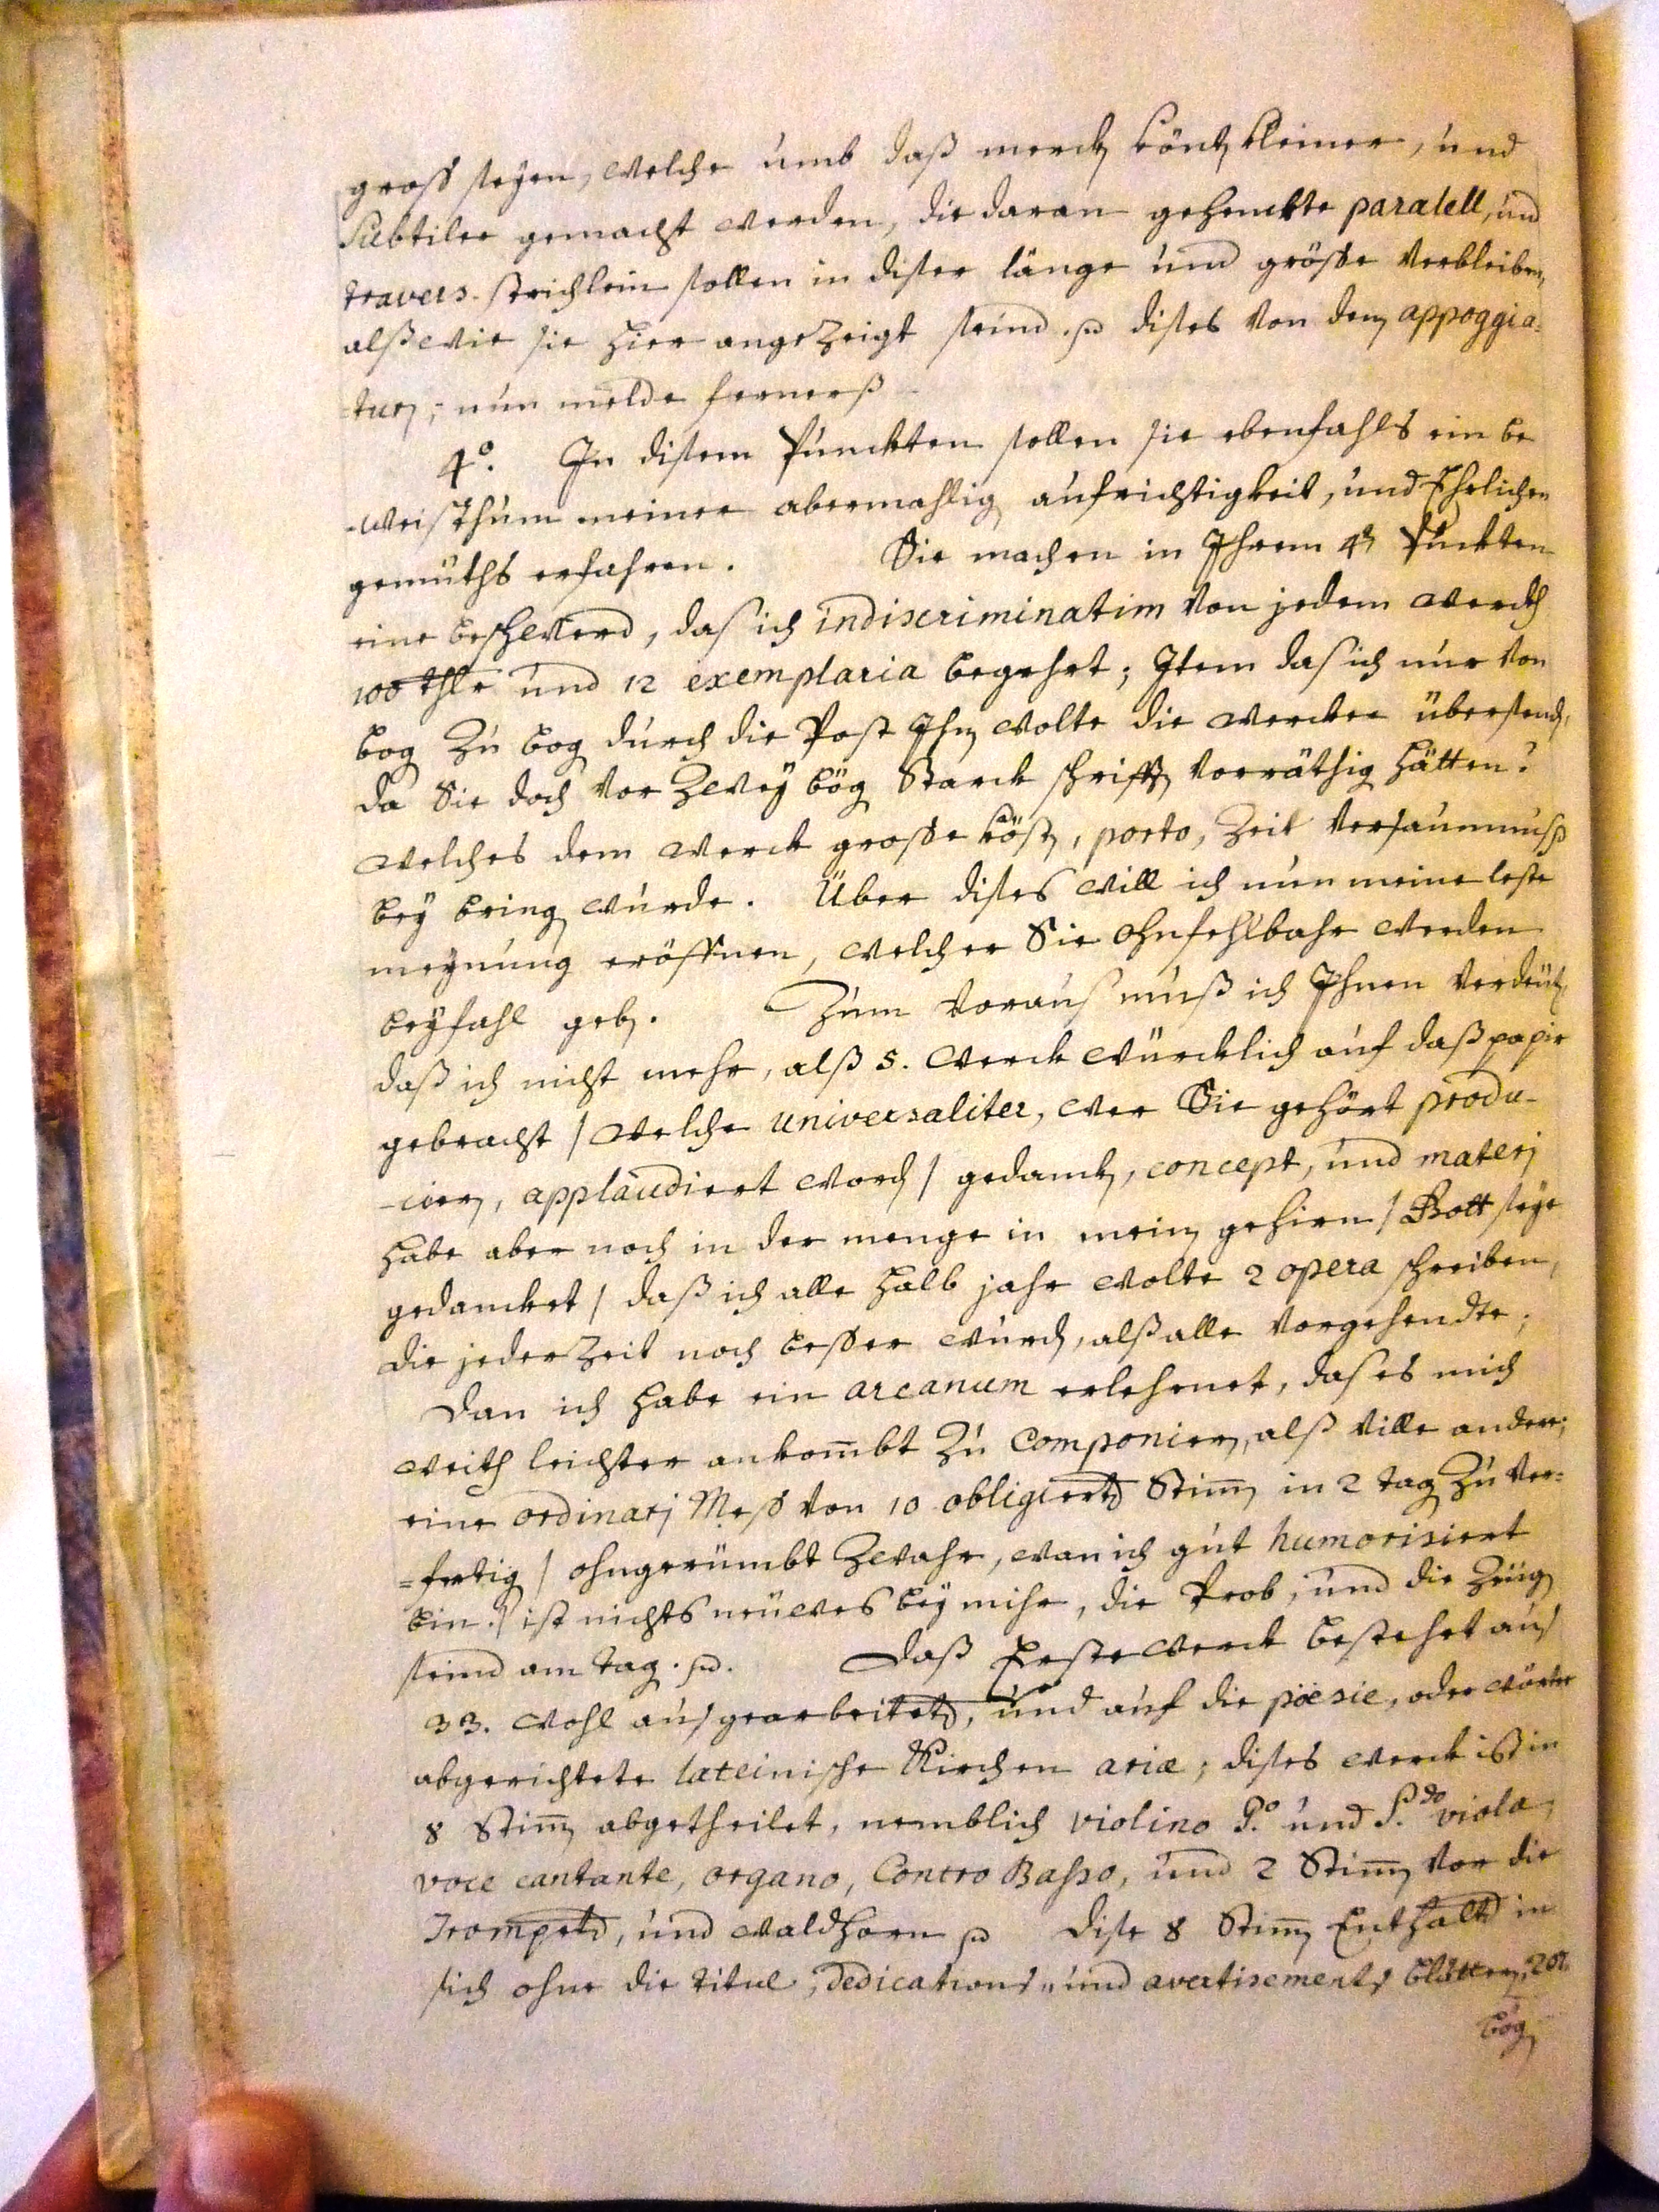 gross seÿen, welche umb daß merckh könth kleiner, und
Subtiler gemacht werden, die daran gehenckte paralell, und
travers-strichlein sollen in diser länge und grösse verbleiben,
alß wie sie hier angezeigt seind. dises von dem appoggia-
-turen; nun melde fernerß
4º. In disem Puncten sollen sie ebenfahls ein be
-weisthum meiner abermahlig aufrichtigkeit, und Ehrlichen
gemüths erfahren. Sie machen in Ihrem 4t Puckten
eine beschwerd, das ich indiscriminatim von jedem werckh
100 thlr und 12 exemplaria begehrt; Item das ich nur von
bog zu bog durch die Post Ihn wolte die wercker übersend,
da Sie doch vor zweÿ bög Starck schrifft vorräthig hätten?
welches dem werck grosse köst, porto, zeit versaumnuß
beÿ bring wurde. Über dises will ich nun meine leste
meynung eröffnen, welcher Sie ohnfehlbahr werden
beÿfahl geben. Zum voraus muß ich Ihnen verdeüt,
daß ich nicht mehr, alß 5. werck würcklich auf daß papir
gebracht / welche universaliter, wer Sie gehört produ-
-cieren, applaudiert word / gedanck, concept, und materj
habe aber noch in der menge in mein gehirn / Gott seÿe
gedancket / daß ich alle halb jahr wolte 2 opera schreiben,
die jederzeit noch besser wurd, alß alle vorgehendte;
Dan ich habe ein arcanum erlehrnet, das es mich
weith leichter ankombt zu Componieren, alß ville andere;
eine ordinarj Mess von 10 obligierten Stimm in 2 tag zu ver=
=fertig / ohngerümbt zwahr, wan ich gut humorisiert
bin./ ist nichts neüwes beÿ mihr, die Prob, und die zeüg
seind am tag. Daß Erste werck bestehet aus
33. wohl ausgearbeiteten, und auf die pöesie, oder wörter
abgerichtete lateinische Kirchen ariæ; dises werck ist in
8 Stimm abgetheilet, nemblich violino P.º und S.do viola,
voce cantante, organo, Contro Basso, und 2 Stimm vor die
Trompeten, und waldhorn Dise 8 Stimm Enthalten in
sich ohne die titul, Dedications- und avertisements blätter, 201
bög